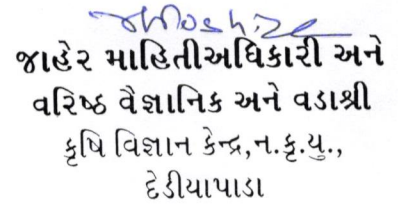 જાહેર માહિતીઅધિકારી અને
વરિષ્ઠ વૈજ્ઞાનિક અને વડાશ્રી
કૃષિ વિજ્ઞાન કેન્દ્ર,ન.કૃ.યુ.,
દેડીયાપાડા